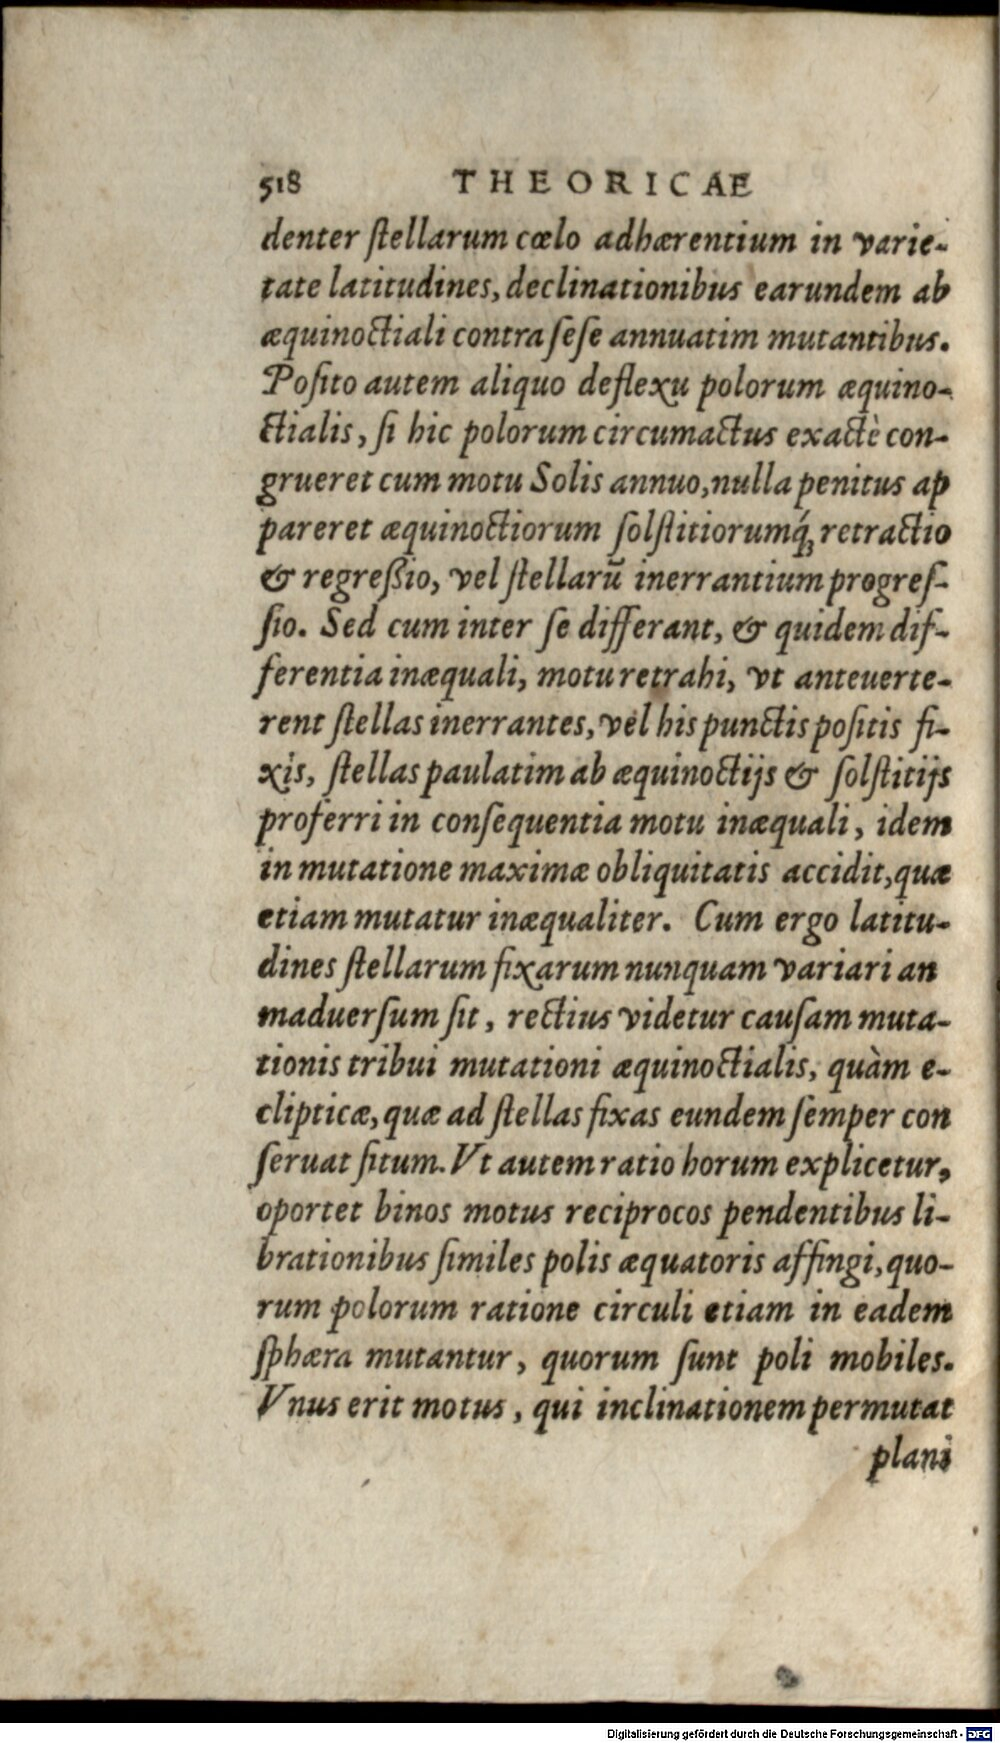 518 THEORICAE
denter ſtellarum cœlo adhærentium in varie-
tate latitudines, declinationibus earundem ab
æquinoctiali contra ſeſe annuatim mutantibus.
Poſito autem aliquo deflexu polorum æquino-
ctialis, ſi hic polorum circumactus exactè con-
grueret cum motu Solis annuo, nulla penitus ap
pareret æquinoctiorum ſolſtitiorumq́ꝫ retractio
& regreßio, vel ſtellarū inerrantium progreſ-
ſio. Sed cum inter ſe differant, & quidem dif-
ferentia inæquali, motu retrahi, vt anteuerte-
rent ſtellas inerrantes, vel his punctis poſitis fi-
xis, ſtellas paulatim ab æquinoctijs & ſolſtitijs
proferri in conſequentia motu inæquali, idem
in mutatione maximæ obliquitatis accidit, quæ
etiam mutatur inæqualiter. Cum ergo latitu-
dines ſtellarum fixarum nunquam variari an
maduerſum ſit, rectius videtur cauſam muta-
tionis tribui mutationi æquinoctialis, quàm e-
clipticæ, quæ ad ſtellas fixas eundem ſemper con
ſeruat ſitum. Vt autem ratio horum explicetur,
oportet binos motus reciprocos pendentibus li-
brationibus ſimiles polis æquatoris affingi, quo-
rum polorum ratione circuli etiam in eadem
ſphæra mutantur, quorum ſunt poli mobiles.
Vnus erit motus, qui inclinationem permutat
plani
Digitalisierung gefördert durch die Deutsche Forschungsgemeinschaft - DFG